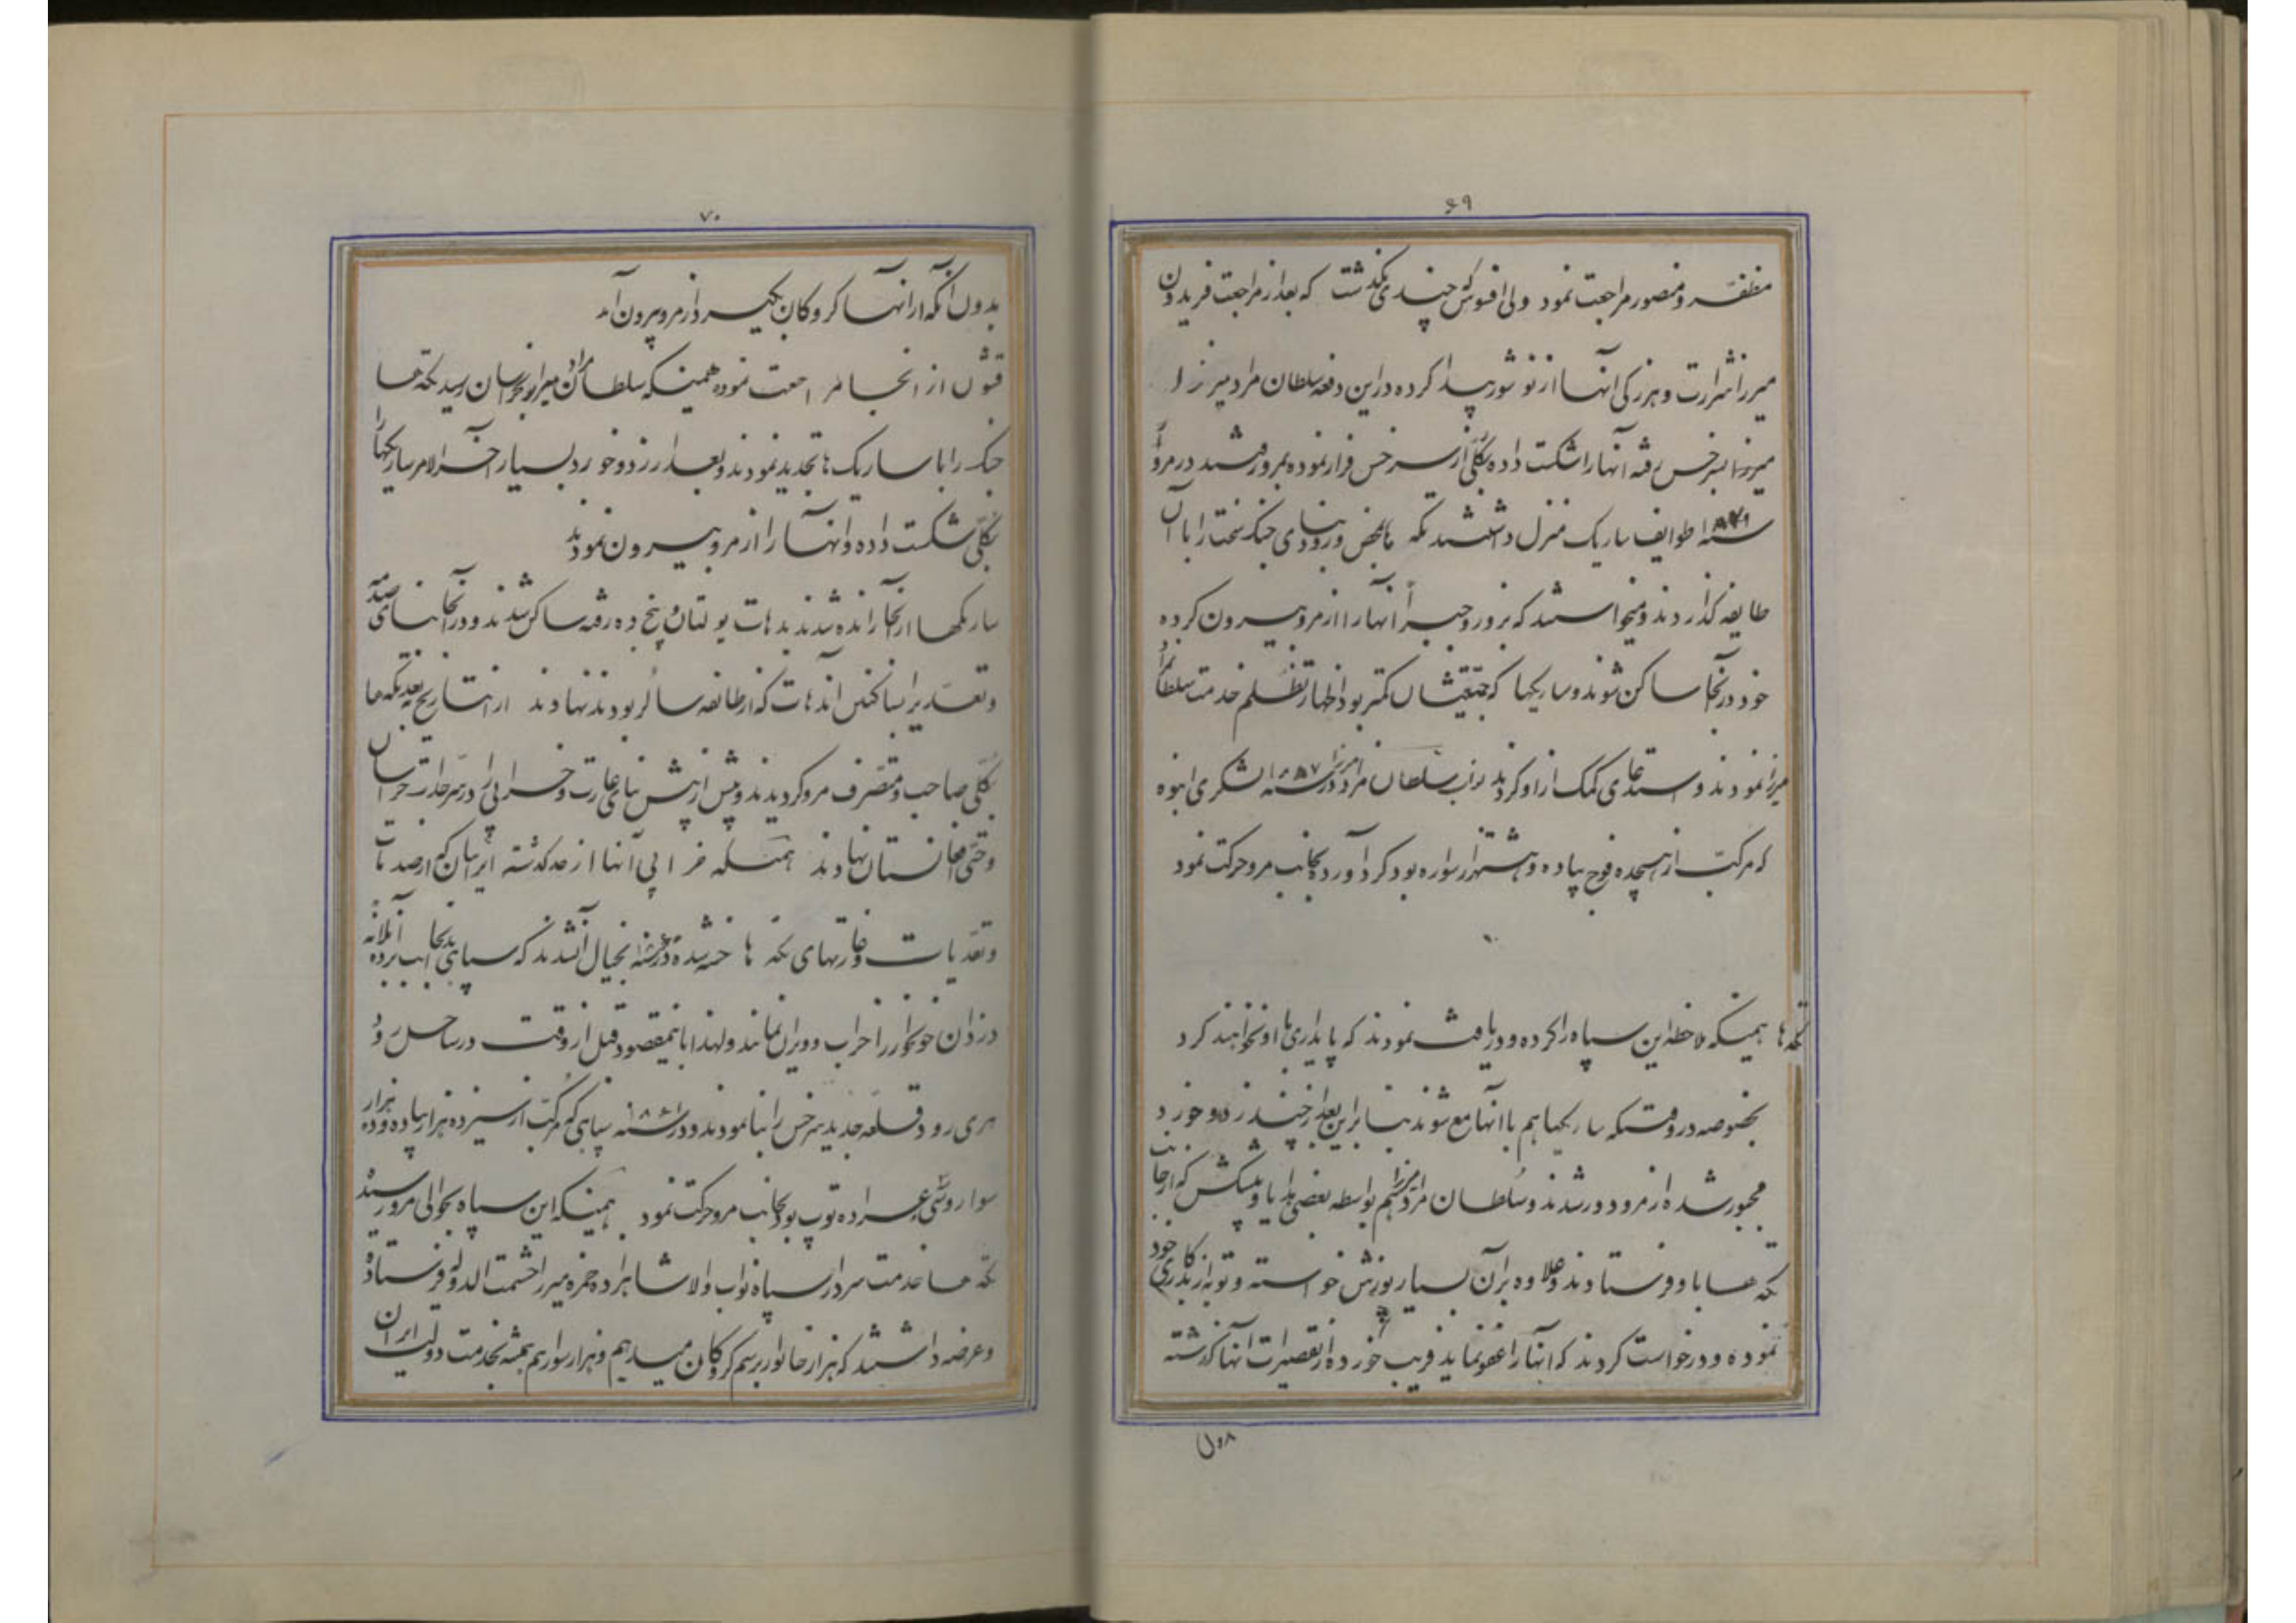 ۶۹
مظفر و منصور مراجعت نمود ولی افسوس که چندی نگذشت که بعد از مراجعت فریدون
میرزا شرارت و هرزگی آنها از نو شور پیدا کرده در این دفعه سلطان مراد میرزا
میرزا بسرخس رفته آنها را شکست داده بکلی از سرخس فرار نموده بمرو رفتند در مرو
سنه طوایف ساریک منزل داشتند تکه ها بمحض ورود بنای جنگ سخت را با آن
طایفه گذاردند و میخواستند که بزور و جبراً آنها را از مرو بیرون کرده
خود در آنجا ساکن شوند و ساریکها که جمعیتشان کمتر بود اظهار تظلم خدمت سلطان مراد
میرزا نمودند و استدعای کمک از او کردند نواب سلطان مراد میرزا در سنه لشکری انبوه
که مرکب از هیجده فوج پیاده و هشتهزار سواره بود گرد آورد بجانب مرو حرکت نمود
تکه ها همینکه ملاحظه این سپاه را کرده و دریافت نمودند که پایداری با او نخواهند کرد
بخصوصه در وقتیکه ساریکها هم با آنها جمع شوند بنابراین بعد از چند زد و خورد
مجبور شده از مرو دور شدند و سلطان مراد میرزا هم بواسطه بعضی هدایا و پیشکش که از جانب
تکه ها باو فرستادند و علاوه بر آن بسیار پوزش خواسته و توبه از بدکاری خود
نموده و درخواست کردند که آنها را عفو نماید فریب خورده از تقصیرات آنها گذشته
بدون
۷۰
بدون آنکه از آنها گروکان بگیرد از مرو بیرون آمد
قشون از آنجا مراجعت نموده همینکه سلطان مراد میرزا بخراسان رسید تکه ها
جنگ را با ساریک ها تجدید نمودند و بعد از زد و خورد بسیار آخر الامر ساریکها را
بکلی شکست داده و آنها را از مرو بیرون نمودند
ساریکها از آنجا رانده شدند بدهات یولتان و پنج ده رفته ساکن شدند و در آنجا بنای صدمه
و تعدی را بساکنین آن دهات که از طائفه سالر بودند نهادند از این تاریخ بعد تکه ها
بکلی صاحب و متصرف مرو گردیدند و بیش از پیش بنای غارت و خرابی را در سرحدات خراسان
و حتی افغانستان نهادند همینکه خرابی آنها از حد گذشته ایرانیان که از صدمات
و تعدیات و غارتهای تکه ها خسته شده در سنه بخیال آن شدند که سپاهی بدانجانب برده آن لانه
دزدان خونخوار را خراب و ویران نمایند و لهذا باین مقصود قبل از وقت در ساحل رود
هری رود قلعه جدید سرخس را بنا نمودند و در سنه سپاهی که مرکب از سیزده هزار پیاده و ده هزار
سوار و سی عراده توپ بود بجانب مرو حرکت نمود همینکه این سپاه بحوالی مرو رسید
تکه ها خدمت سردار سپاه نواب والا شاهزاده حمزه میرزا حشمت الدوله فرستاده
و عرضه داشتند که هزار خانوار برسم گروکان میدهیم و هزار سوار هم همیشه بخدمت دولت ایران